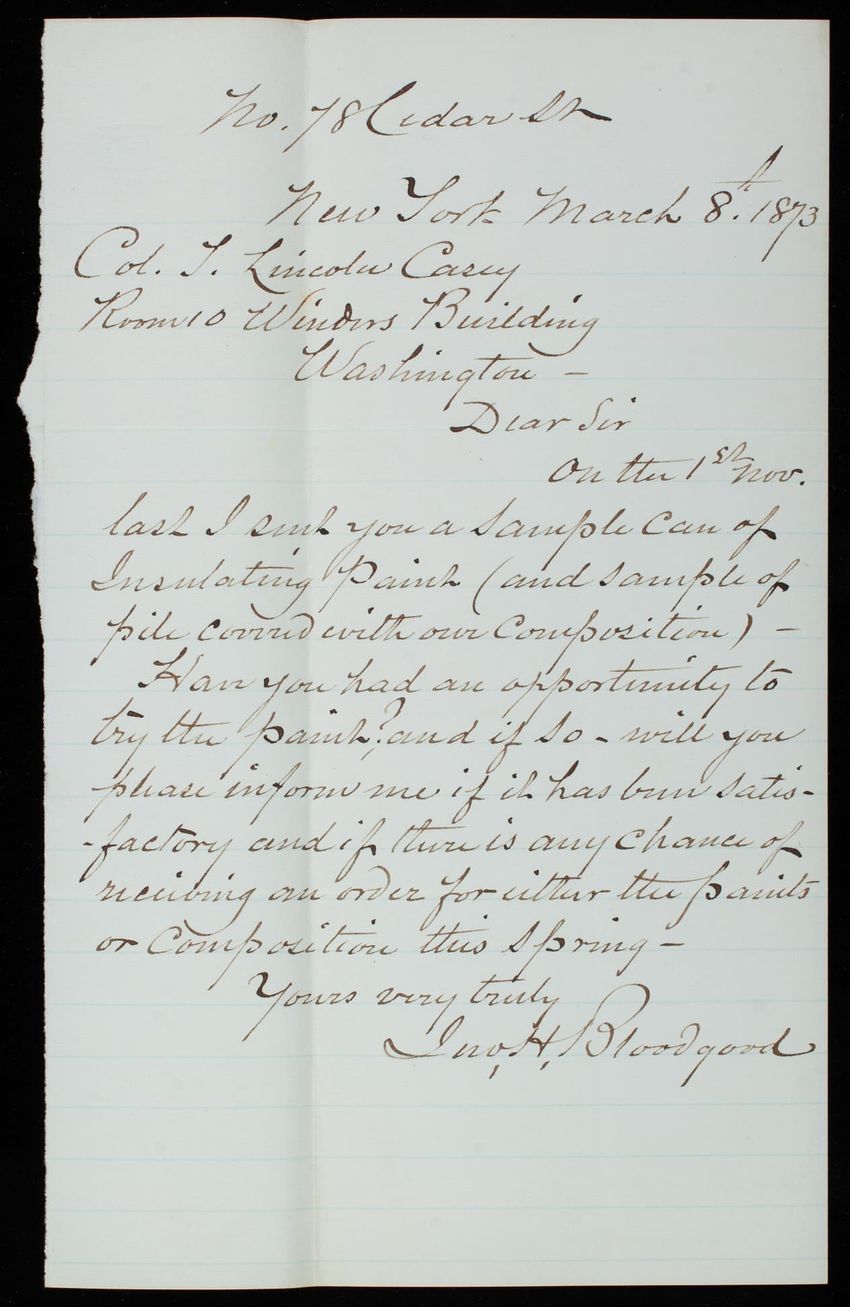 No. 78 Cedar St
New York March 8.th 1873
Col. T. Lincoln Casey
Room 10 Winders Building
Washington -
Dear Sir
On the 1st Nov.
last I sent you a sample can of
Insulating Paint (and sample of
pile covered with our Composition) -
Have you had an opportunity to
try the paint? and if so - will you
please inform me if it has been satis-
-factory and if there is any chance of
receiving an order for either the paints
or Composition this Spring -
Yours very truly
Jno, H, Bloodgood